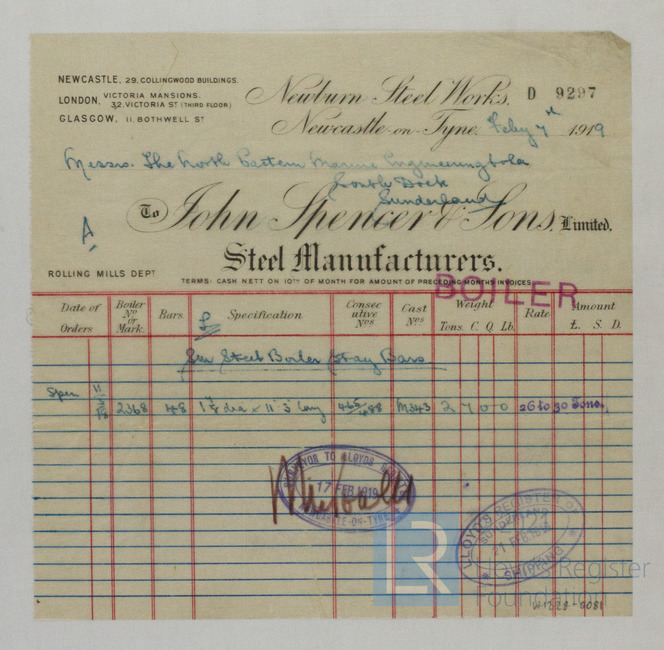 NEWCASTLE, 29, COLLINGWOOD BUILDINGS.
LONDON, VICTORIA MANSIONS.
32, VICTORIA ST (THIRD FLOOR)
GLASGOW, 11, BOTHWELL ST
Newburn Steel Works, D 9297
Newcastle-on-Tyne, Feby 7th 1919
Messrs. The North Eastern Marine Engineering Co Ld
South Dock
Sunderland
A
To John Spencer & Sons, Limited.
Steel Manufacturers.
ROLLING MILLS DEPT
TERMS: CASH NETT ON 10TH OF MONTH FOR AMOUNT OF PRECEDING MONTHS INVOICES
BOILER
Date of Orders Boiler No or Mark. Bars Specification Consecutive Nos Cast Nos Weight Tons. C. Q. Lb. Rate Amount £. S. D.
Steel Boiler Stay Bars
Spen 2368 48 dia x 11' 3" long 465/488 M343 2 7 0 0 26 to 30 Tons.
SURVEYOR TO LLOYDS
17 FEB 1919
NEWCASTLE-ON-TYNE
LLOYD'S REGISTER OF
SUNDERLAND
21 FEB 1919
SHIPPING
LR
Lloyd's Register
Foundation
W1228-0081